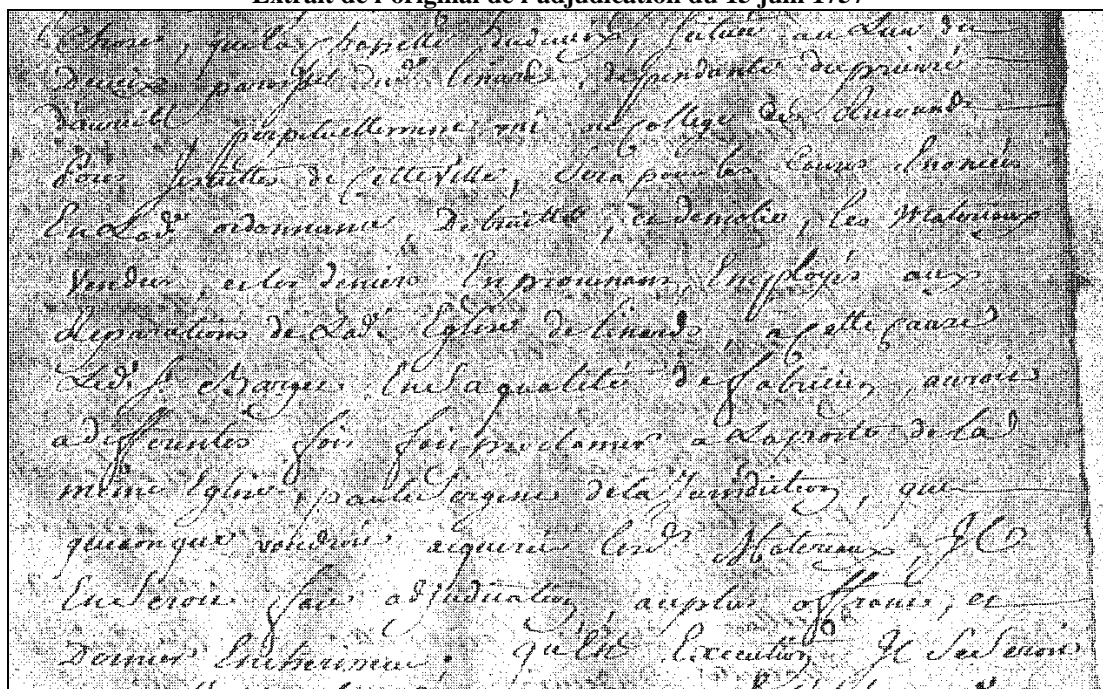 Extrait de l'original de l'adjudication du 13 juin 1757
Chose, que la chapelle , située au Lieu de
paroisse dud.t linards, dependante du prieuré
perpetuellement uni au college des Reverends
Peres Jesuittes de Cette Ville, Sera pour les Causes Enoncées
En Lad.e ordonnance, Detruitte, et demolie, les Materieaux
Vendus, et les deniers En provenans, Employés aux
Reparations de Lad.e Eglise de linards, a Cette Cause
Led.t S.r Barget En Sa qualité de fabricien, auroit
a differentes fois fait proclamer a La porte de lad.
même Eglise, par le Sergent de la Jurisdiction, que
quiconque voudroit acquerir Lesd.ts Materieaux, Il
En Seroit fait adjudication, au plus offrant, et
Dernier Encherisseur. qu'En Execution Il Se Seroit